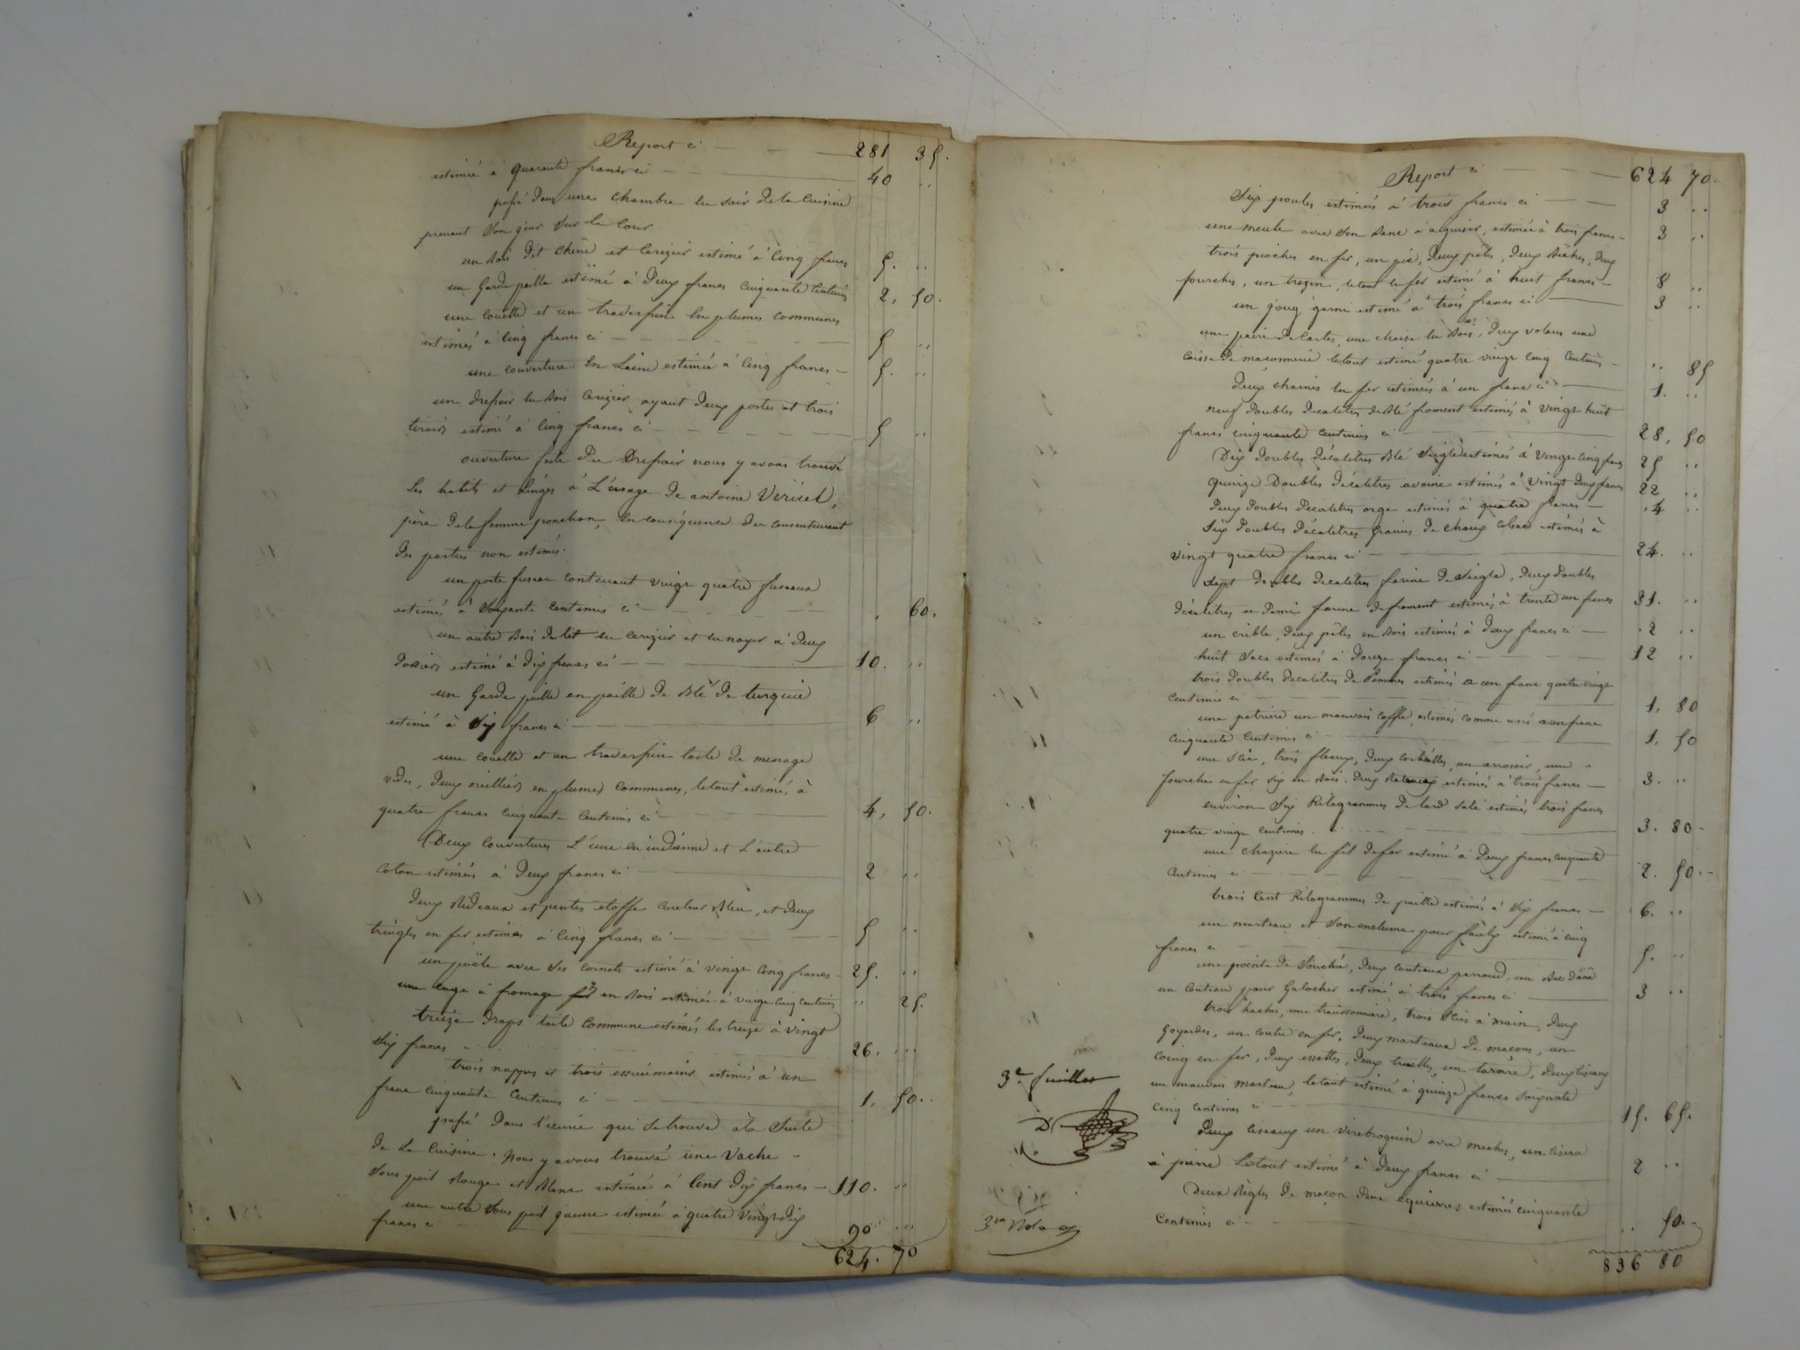 Report ci 281 35.
estimée à quarante francs ci 40 ..
passé dans une chambre en soir de la Cuisine
prenant son jour sur la Cour
un bois de lit chêne et Cerizier estimé à Cinq francs 5. ..
un Garde paille estimé à Deux francs Cinquante Centimes 2, 50.
une couette et un traverssin en plumes communes
estimés à Cinq francs ci 5 ..
une couverture en Laine estimée à Cinq francs 5. ..
un dressoir en bois Cerizier ayant Deux portes et trois
tiroirs estimé à Cinq francs ci 5 ..
ouverture faite Du Dressoir nous y avons trouvé
les habits et Linges à L'usage De antoine Véricel,
père De la femme ponchon, en conséquence Du consentement
Des parties non estimés.
un porte fuseau contenant vingt quatre fuseaux
estimés à Soixante Centimes ci . 60.
un autre bois De lit en Cerizier et en noyer à Deux
Dossiers estimé à Dix francs ci 10. ..
un Garde paille en paille De Blé De turquie
estimé à Six francs ci 6 ..
une couette et un traverssin toile De menage
vides, Deux oreillers en plumes Communes, le tout estimé à
quatre francs Cinquante Centimes ci 4, 50.
Deux Couvertures L'une en indienne et L'autre
Coton estimées à Deux francs ci 2 ..
Deux Rideaux et pentes étoffe Couleur bleu, et Deux
tringles en fer estimés à Cinq francs ci 5 ..
un poële avec ses Cornets estimé à vingt Cinq francs 25. ..
une cage à fromage en bois estimée à vingt Cinq Centimes .. 25.
treize Draps toile Commune estimés les treize à vingt
Six francs 26. ...
trois nappes et trois essuiemains estimés à un
franc Cinquante Centimes ci 1, 50..
passé Dans l'écurie qui se trouve à la Suite
De La Cuisine. Nous y avons trouvé une Vache
Sous poil Rouge et Blanc estimée à Cent Dix francs 110. ..
une autre sous poil jaune estimée à quatre vingt dix
francs ci 90 ...
624. 70
Report ci 624 70.
Six poules estimées à trois francs ci 3 ..
une meule avec son banc a aiguiser, estimée à trois francs 3 ..
trois pioches en fer, un pic, Deux pelles, Deux bêches, Deux
fourches, un , le tout en fer estimé à huit francs 8 ..
un joug garni estimé à trois francs ci 3 ..
une paire De Cartes, une chaise en bois, Deux volans une
Caisse De maconnerie le tout estimé quatre vingt Cinq Centimes .. 85
Deux chaines en fer estimées à un franc ci 1. ..
neuf Doubles Décalitres de Blé froment estimés à Vingt huit
francs cinquante Centimes ci 28, 50
Dix Doubles Décalitres Blé Seigle estimés à Vingt Cinq francs 25 ..
Quinze Doubles Décalitres avoine estimés à Vingt Deux francs 22 ..
Deux Doubles Décalitres orge estimés à quatre francs .4 ..
Six Doubles Décalitres Graines De choux Colsac estimés à
vingt quatre francs ci 24. ..
Sept Doubles Décalitres farine De Seigle, Deux Doubles
Décalitres et Demi farine De froment estimés à trente un francs 31. ..
un crible, Deux pêles en bois estimés à Deux francs ci .2 ..
huit Sacs estimés à Douze francs ci 12 ..
trois Doubles Décalitres De Pommes estimés à un franc quatre vingt
Centimes ci 1, 80
une petrière un mauvais Coffre, estimés comme usés à un franc
Cinquante Centimes ci 1, 50
une Scie, trois fléaux, Deux Corbeilles, un arrosoir, une
fourche en fer six en bois, Deux Rateaux estimés à trois francs 3. ..
environ Six Kilogrammes De lard Salé estimés trois francs
quatre vingt Centimes 3. 80
une chazere en fil De fer estimé à Deux francs Cinquante
Centimes ci 2. 50..
trois Cent Kilogrammes De paille estimés à Six francs 6. ..
un marteau et son enclume pour faulx estimé à Cinq
francs ci 5. ..
une pointe De , Deux Couteaux parroud, un Bec D'âne
un Couteau pour Galocher estimé à trois francs ci 3 ..
trois haches, une tranconnaire, trois Scies à main, Deux
Goyardes, un Coutre en fer, Deux marteaux De maçons, un
Coing en fer, Deux essettes, Deux truelles, un tarare, Deux 
un mauvais marteau, le tout estimé à quinze francs Soixante
Cinq Centimes ci 15. 65.
Deux Ciseaux un virebroquin avec meches, un Ciseau
à pierre Le tout estimé à Deux francs ci 2 ..
Deux Règles De maçon Deux équierres estimés cinquante
Centimes ci .. 50.
836 80
3e. feuillet
D
3me Role